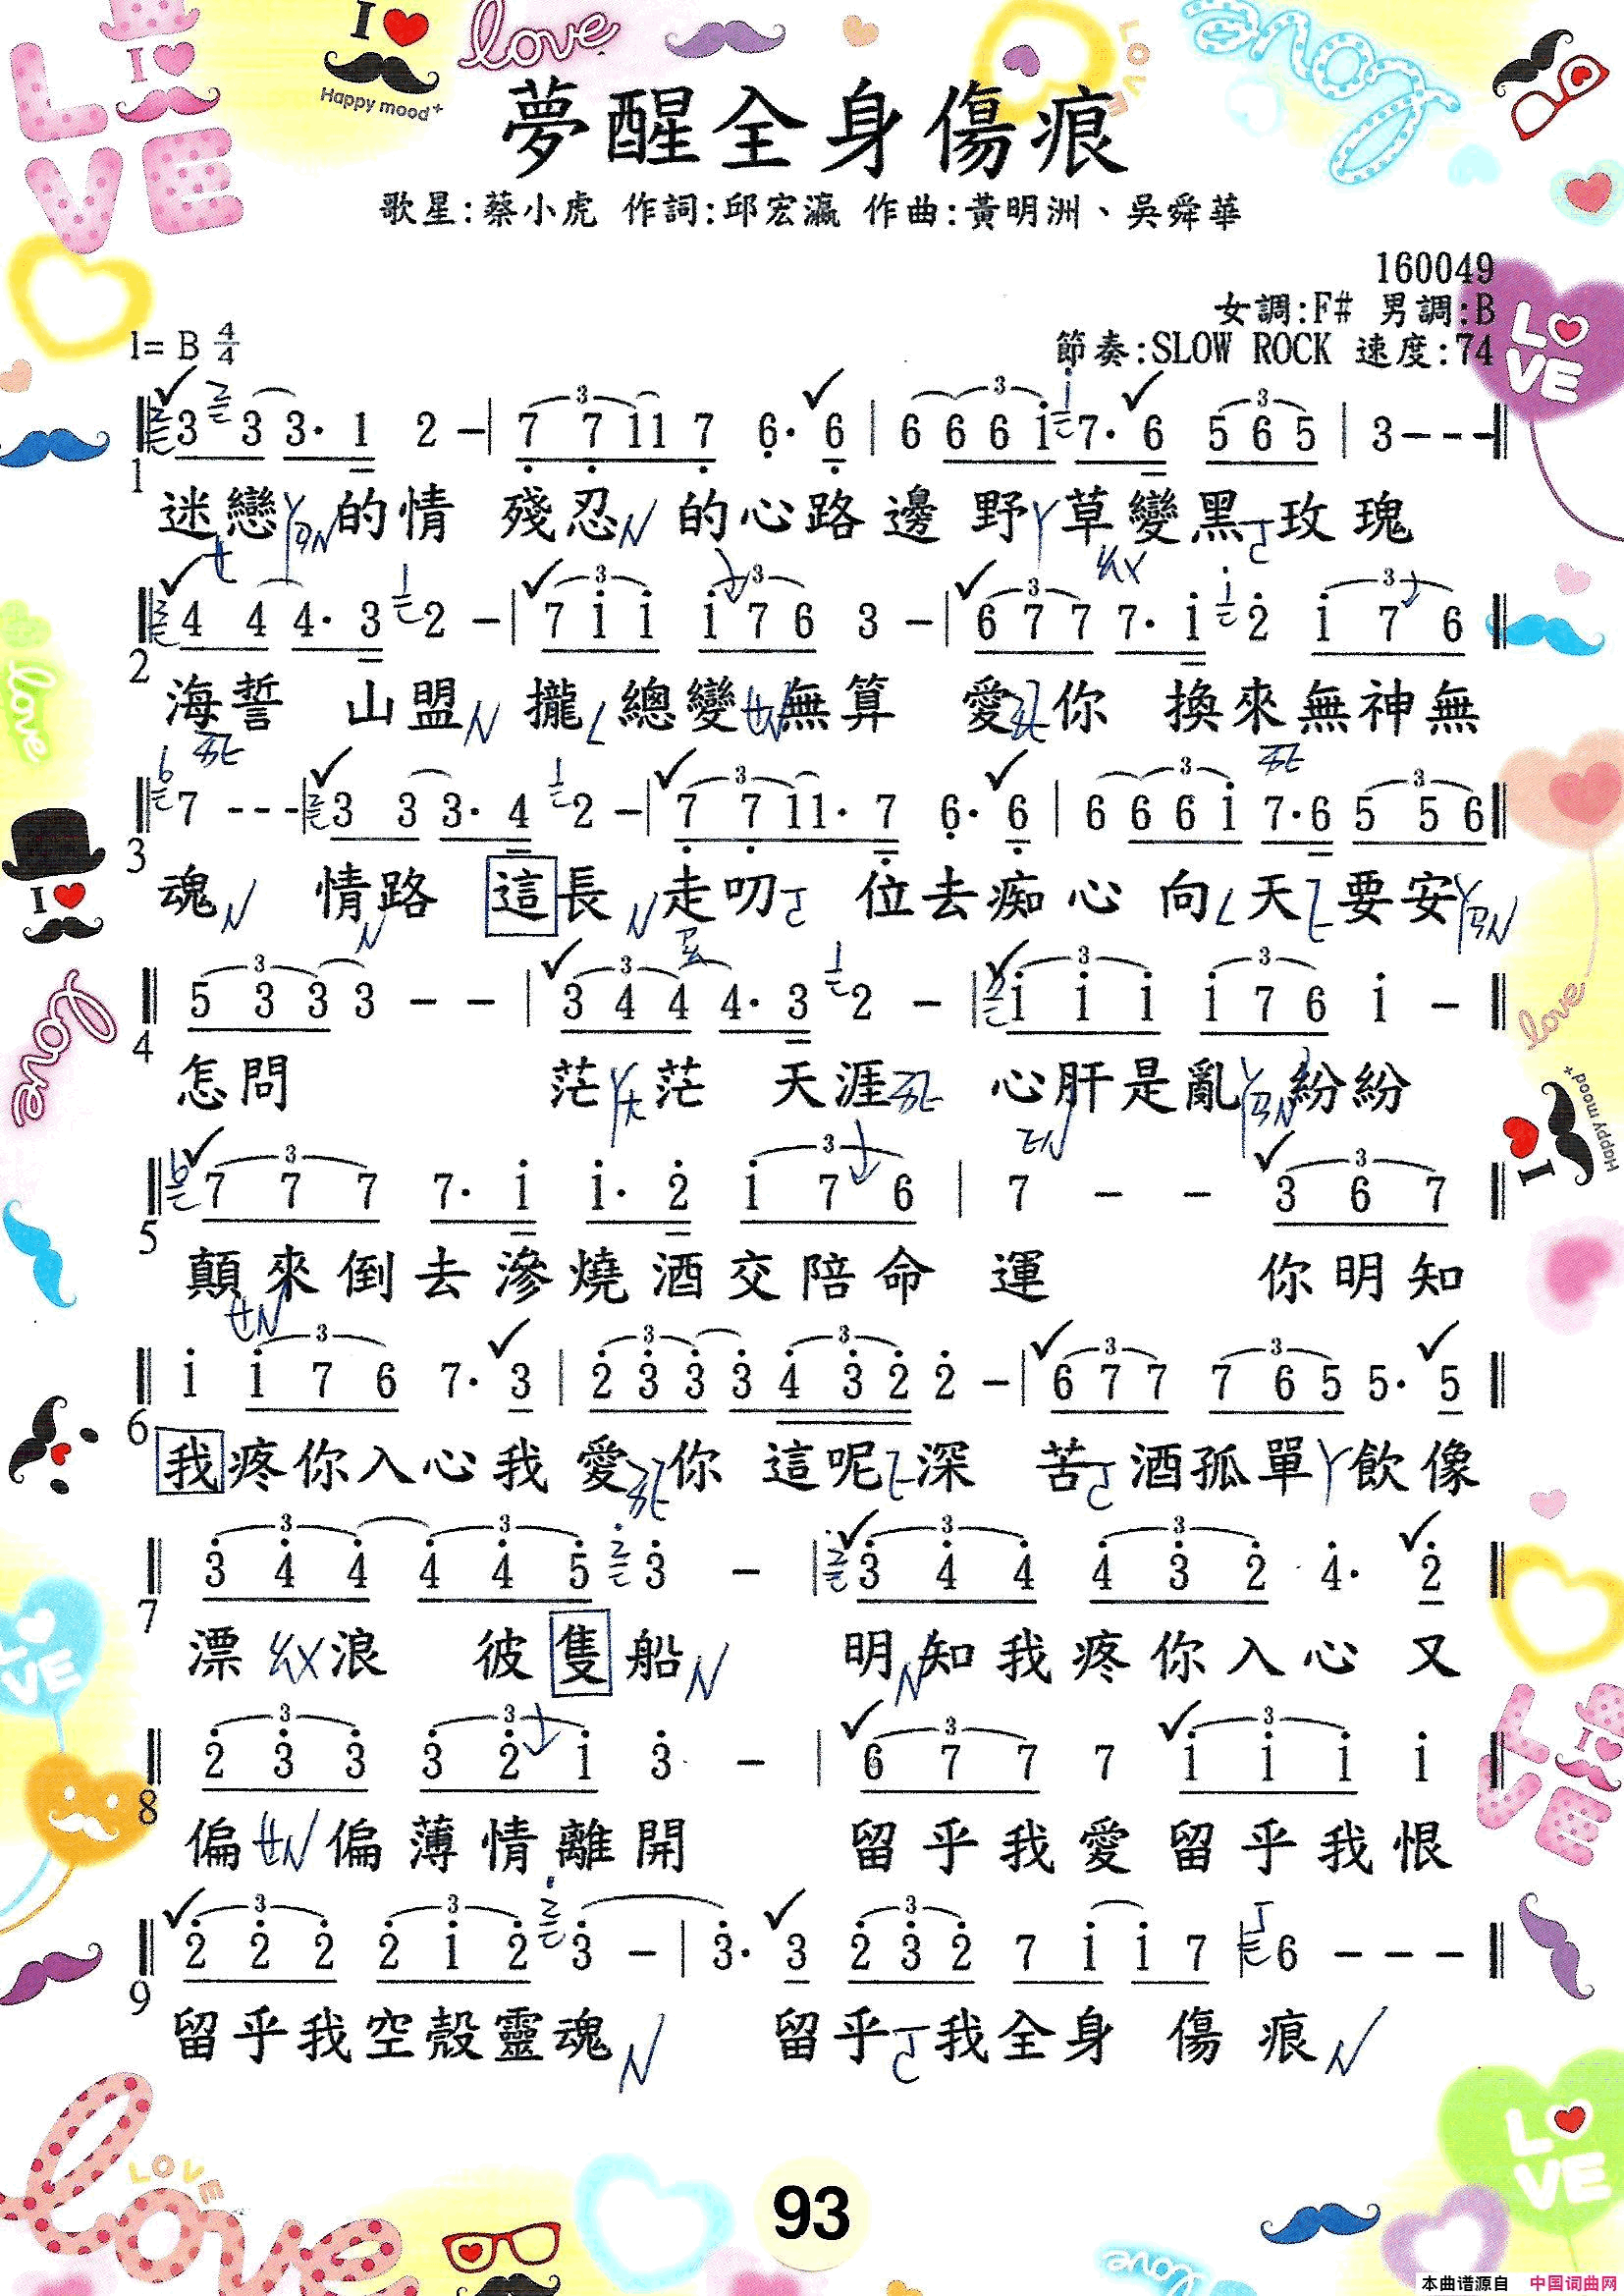 I
Happy mood+
love
LOVE
Love
夢醒全身傷痕
歌星:蔡小虎 作詞:邱宏瀛 作曲:黃明洲、吳舜華
160049
女調:F# 男調:B
1= B 4/4
節奏:SLOW ROCK 速度:74
LOVE
3 3 3· 1 2 - | 7 7 1 1 7 6· 6 | 6 6 6 i 7· 6 5 6 5 | 3 - - -
1
迷戀 的情 殘忍 的心路邊 野 草變黑 玫瑰
4 4 4· 3 2 - | 7 i i i 7 6 3 - | 6 7 7 7· i 2 i 7 6
2
海誓 山盟 攏 總變 無算 愛 你 換來無神無
7 - - - | 3 3 3· 4 2 - | 7 7 1 1· 7 6· 6 | 6 6 6 i 7· 6 5 5 6
3
魂 情路 這長 走叨 位去痴心 向 天 要安
5 3 3 3 - - | 3 4 4 4· 3 2 - | i i i i 7 6 i -
4
怎問 茫 茫 天涯 心肝是亂 紛紛
7 7 7 7· i i· 2 i 7 6 | 7 - - 3 6 7
5
顛來倒去滲燒酒交陪命 運 你明知
i i 7 6 7· 3 | 2 3 3 3 4 3 2 2 - | 6 7 7 7 6 5 5· 5
6
我疼你入心我 愛 你 這呢 深 苦 酒孤單 飲像
3 4 4 4 4 5 3 - | 3 4 4 4 3 2 4· 2
7
漂 浪 彼隻船 明 知我疼你入心 又
2 3 3 3 2 i 3 - | 6 7 7 7 i i i i
8
偏 偏薄情離開 留乎我愛 留乎我恨
2 2 2 2 i 2 3 - | 3· 3 2 3 2 7 i i 7 | 6 - - -
9
留乎我空殼靈魂 留乎 我全身 傷 痕
LOVE
love
93
LOVE
love
本曲谱源自 中国词曲网